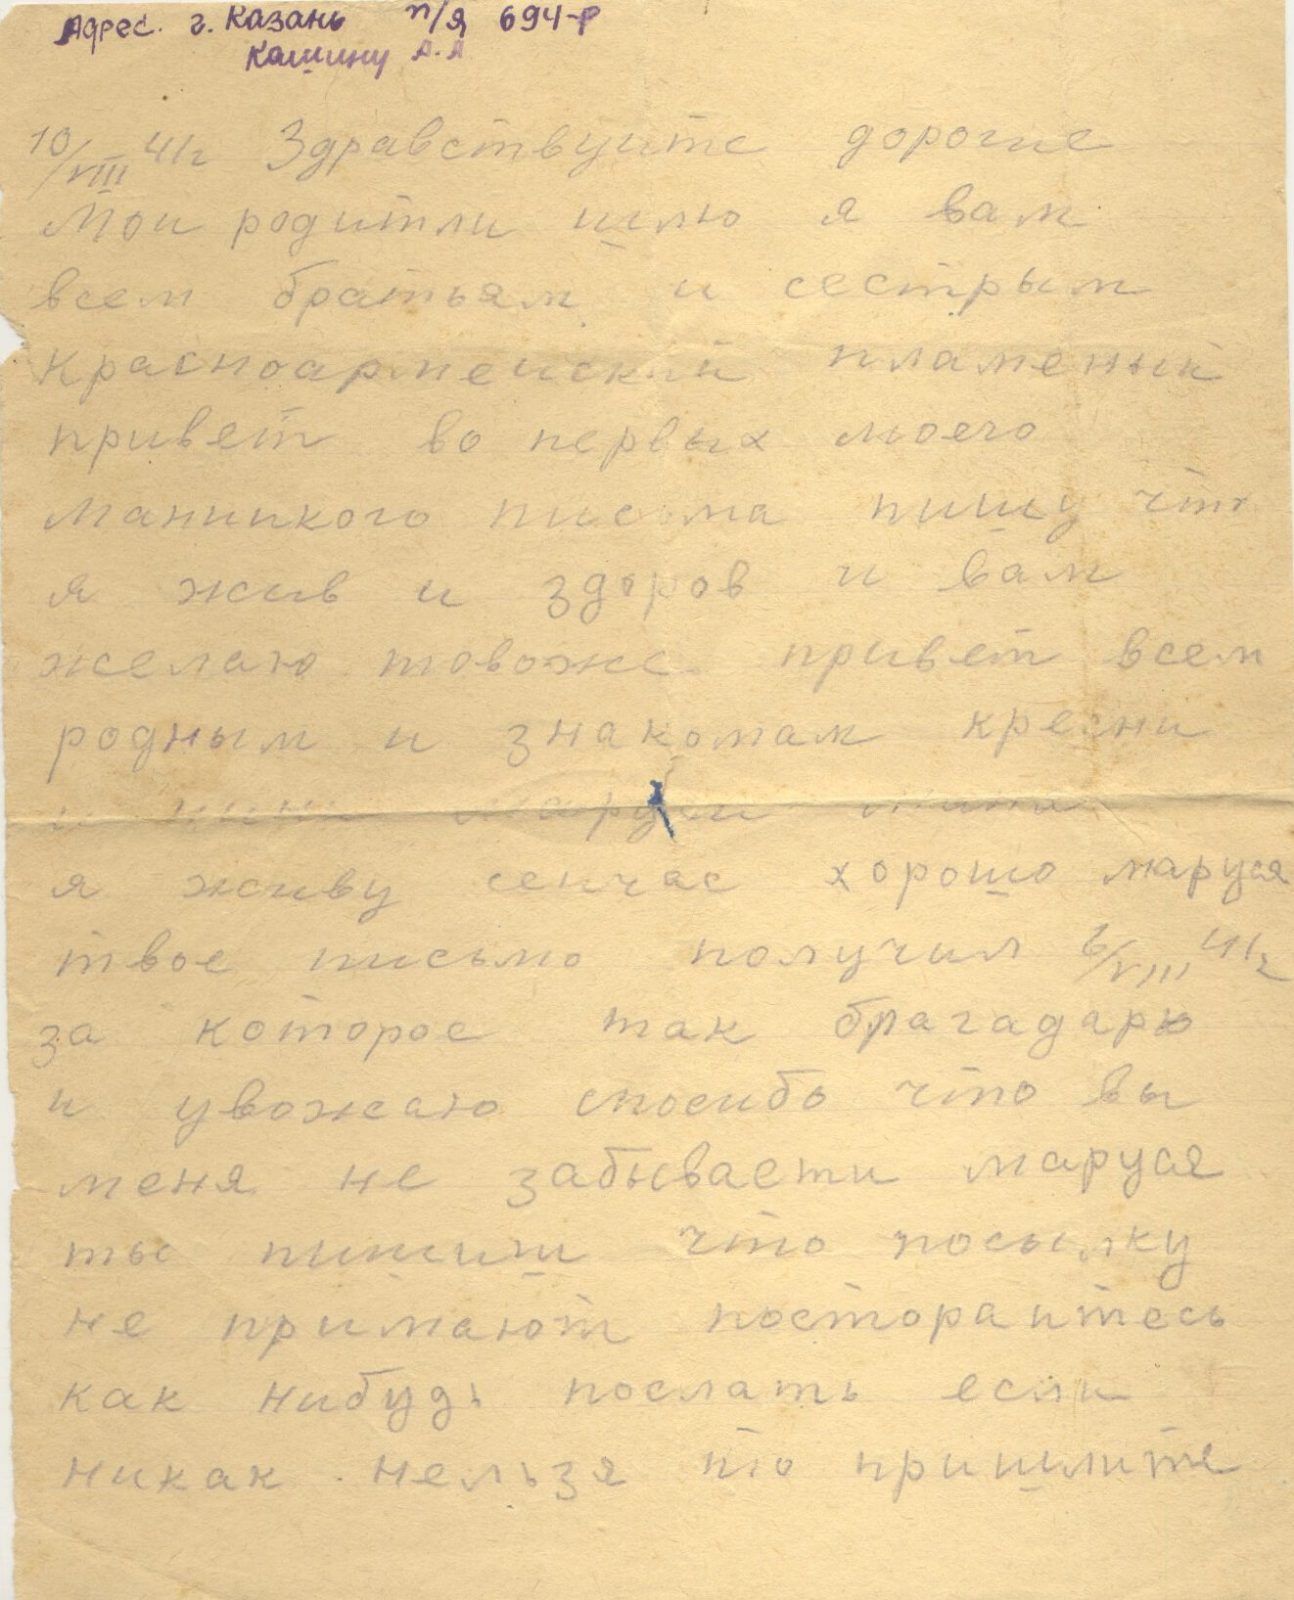 Адрес. г. Казань п/я 694-Р
Кашину А.А
10/VIII 41г Здравствуите дорогие
Мои родитли шлю я вам
всем братьям и сестрым
красноармеиский пламеный
привет во первых моего
манинкого письма пишу что
я жив и здоров и вам
желаю товоже. привет всем
родным и знакомам кресни
и нини маруси
я живу сеичас хорошо маруся
твое письмо получил 6/VIII 41г
за которое так благадарю
и увожаю спосибо что вы
меня не забывaети маруся
ты пишиш что посылку
не примают посторантесь
как нибудь послать если
никак нельзя то пришлите